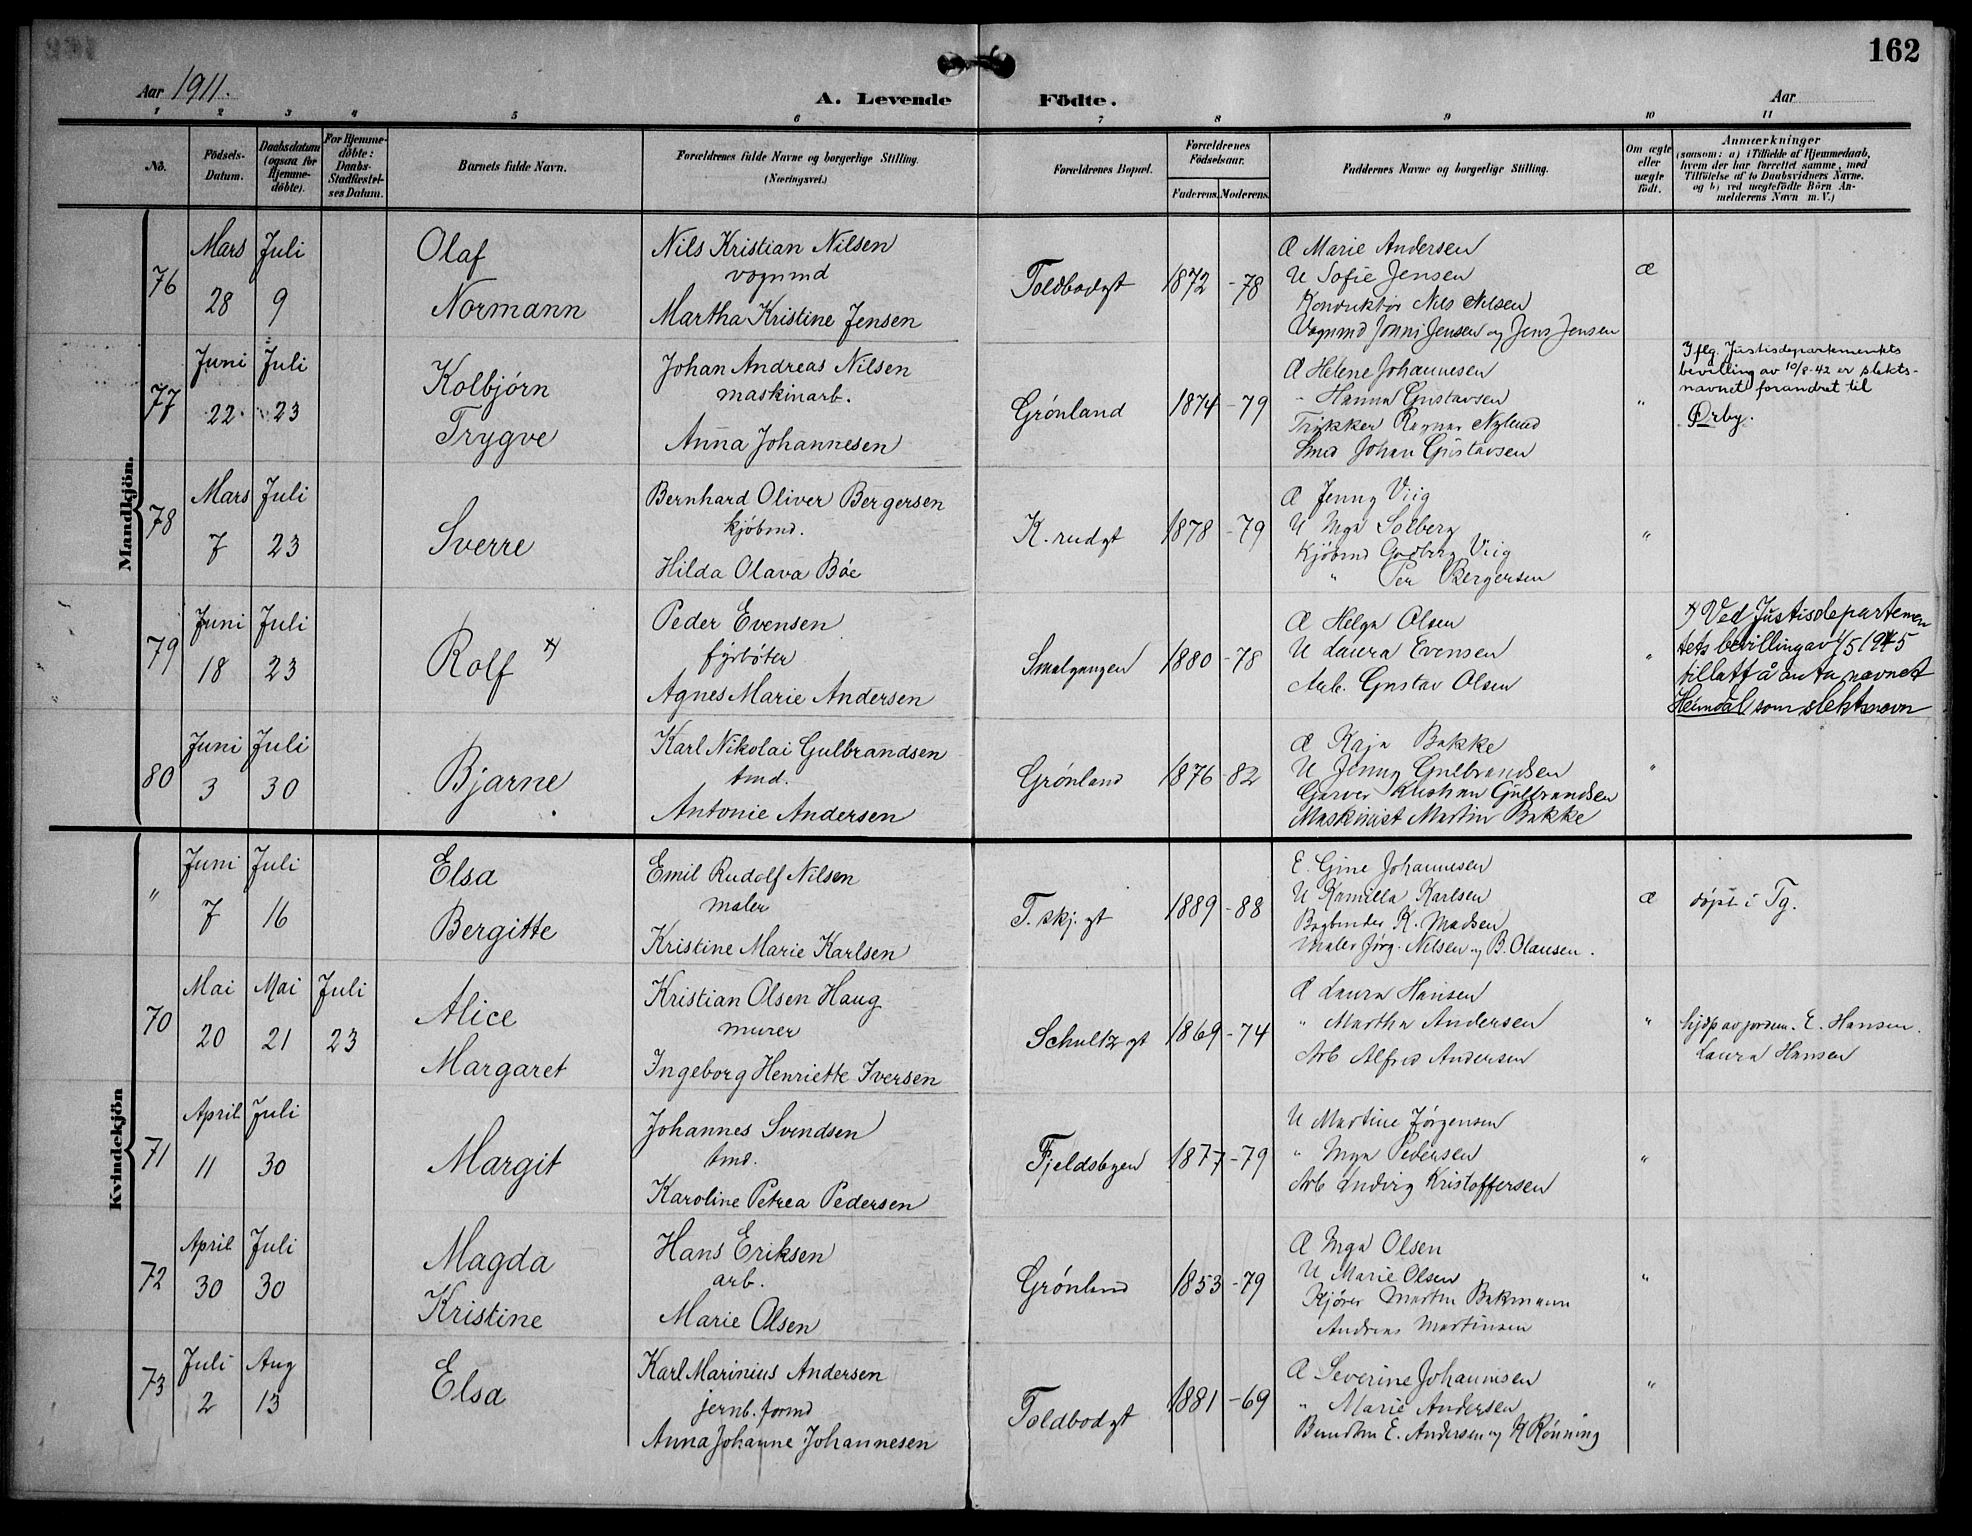 162
Aar 1911.
A. Levende Födte.
Aar
1 2 3 4 5 6 7 8 9 10 11
No.
Födsels-Datum.
Daabsdatum (ogsaa for Hjemmedöbte).
For Hjemmedöbte: Daabs-Stadfæstelses Datum.
Barnets fulde Navn.
Forældrenes fulde Navne og borgerlige Stilling.
(Næringsvei.)
Forældrenes Bopæl.
Forældrenes Födselsaar.
Faderens. Moderens.
Faddernes Navne og borgerlige Stilling.
Om ægte eller uægte födt.
Anmærkninger
(saasom: a) i Tilfælde af Hjemmedaab, hvem der har forrettet samme, med Tilföielse af to Daabsvidners Navne. og b) ved uægtefödte Börn Anmelderens Navn m. V.)
Mandkjön.
76
Mars 28
Juli 9
Olaf
Normann
Nils Kristian Nilsen
vognmd
Martha Kristine Jensen
Toldbodgt
1872 -78
Æ Marie Andersen
U Sofie Jensen
Konduktør Nils Nilsen
Vognmd Jonni Jensen og Jens Jensen
æ
77
Juni 22
Juli 23
Kolbjørn
Trygve
Johan Andreas Nilsen
maskinarb.
Anna Johannesen
Grønland
1874 -79
Æ Helene Johannesen
" Hanna Gustavsen
Trykker Ragnar Nylund
Smed Johan Gustavsen
"
Iflg. Justisdepartementets
bevilling av 10/8-42 er slekts-
navnet forandret til
Ørby.
78
Mars 7
Juli 23
Sverre
Bernhard Oliver Bergersen
kjøbmd.
Hilda Olava Bøe
K.rudgt
1878 -79
Æ Jenny Viig
U Inga Solberg
Kjøbmd Godberg Viig
" Per Bergersen
"
79
Juni 18
Juli 23
Rolf x)
Peder Evensen
fyrbøter
Agnes Marie Andersen
Smalgangen
1880 -78
Æ Helga Olsen
U Laura Evensen
Arb. Gustav Olsen
"
x) Ved Justisdepartemen
tets bevilling av 1/5 1945
tillatt å anta navnet
Heimdal som slektsnavn
80
Juni 3
Juli 30
Bjarne
Karl Nikolai Gulbrandsen
tmd.
Antonie Andersen
Grønland
1876 -82
Æ Kaja Bakke
U Jenny Gulbrandsen
Garver Kristian Gulbrandsen
Maskinist Martin Bakke
"
Kvindekjön
"
Juni 7
Juli 16
Elsa
Bergitte
Emil Rudolf Nilsen
maler
Kristine Marie Karlsen
T.skj.gt
1889 -88
E. Gine Johannesen
U Kamilla Karlsen
Bogbinder K. Madsen
Maler Jørg. Nilsen og B. Olausen.
æ
døpt i Tg.
70
Mai 20
Mai 21
Juli 23
Alice
Margaret
Kristian Olsen Haug
murer
Ingeborg Henriette Iversen
Schultz gt
1869 -74
Æ Laura Hansen
" Martha Andersen
Arb Alfred Andersen
"
hjdp av jordm. E. Hansen.
Laura Hansen
71
April 11
Juli 30
Margit
Johannes Svendsen
tmd.
Karoline Petrea Pedersen
Fjeldsbyen
1877 -79
U Martine Jørgensen
" Inga Pedersen
Arb Ludvig Kristoffersen
"
72
April 30
Juli 30
Magda
Kristine
Hans Eriksen
arb.
Marie Olsen
Grønland
1853 -79
Æ Inga Olsen
U Marie Olsen
Kjører Martin Bakmann
Andreas Martinsen
"
73
Juli 2
Aug 13
Elsa
Karl Marinius Andersen
jernb.formd
Anna Johanne Johannesen
Toldbodgt
1881 -69
Æ Severine Johannesen
" Marie Andersen
E. Andersen og K Rønning
"